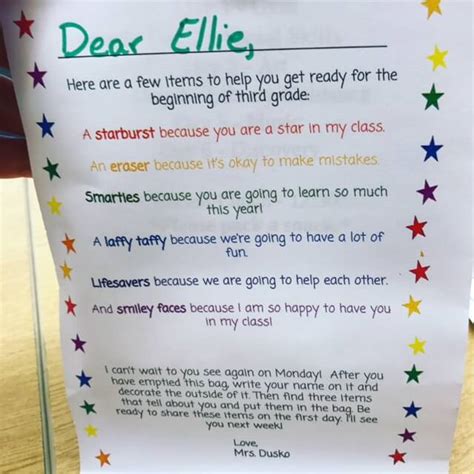 Dear Ellie,
Here are a few items to help you get ready for the
beginning of third grade:
A starburst because you are a star in my class.
An eraser because it's okay to make mistakes.
Smarties because you are going to learn so much
this year!
A laffy taffy because we're going to have a lot of
fun.
Lifesavers because we are going to help each other.
And smiley faces because I am so happy to have you
in my class!
I can't wait to you see again on Monday! After you
have emptied this bag, write your name on it and
decorate the outside of it. Then find three items
that tell about you and put them in the bag. Be
ready to share these items on the first day. I'll see
you next week!
Love,
Mrs. Dusko